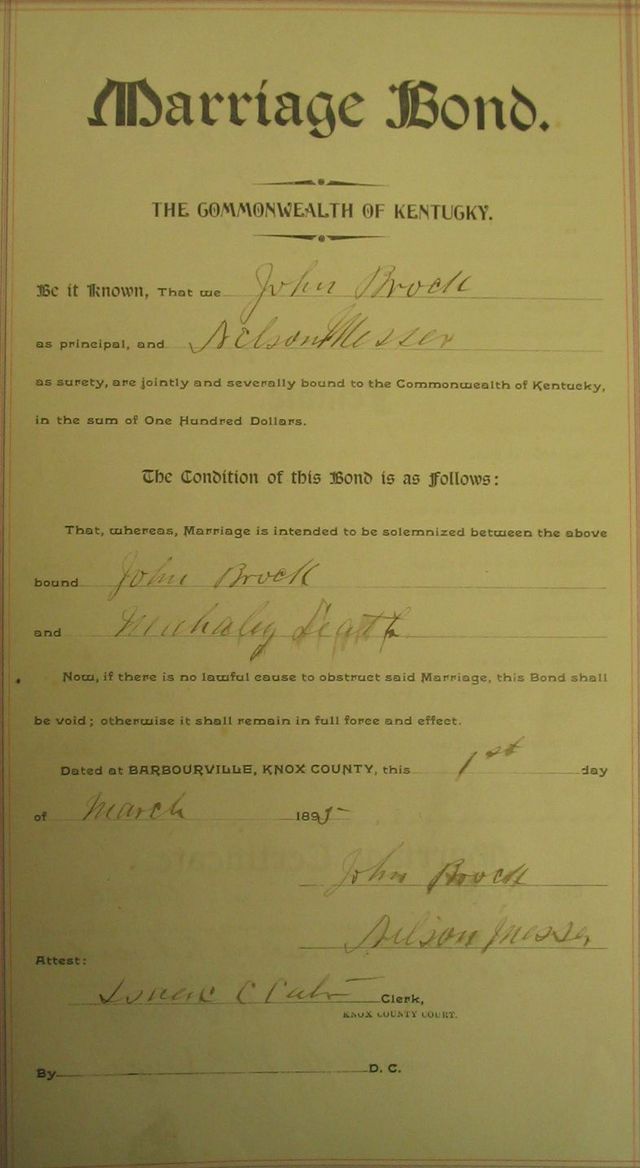 Marriage Bond.
THE COMMONWEALTH OF KENTUCKY.
Be it Known, That we John Brock
as principal, and Nelson Messer
as surety, are jointly and severally bound to the Commonwealth of Kentucky,
in the sum of One Hundred Dollars.
The Condition of this Bond is as follows:
That, whereas, Marriage is intended to be solemnized between the above
bound John Brock
and
Now, if there is no lawful cause to obstruct said Marriage, this Bond shall
be void; otherwise it shall remain in full force and effect.
Dated at BARBOURVILLE, KNOX COUNTY, this 1st day
of March 1895
John Brock
Nelson Messer
Attest:
Clerk,
KNOX COUNTY COURT.
By D. C.